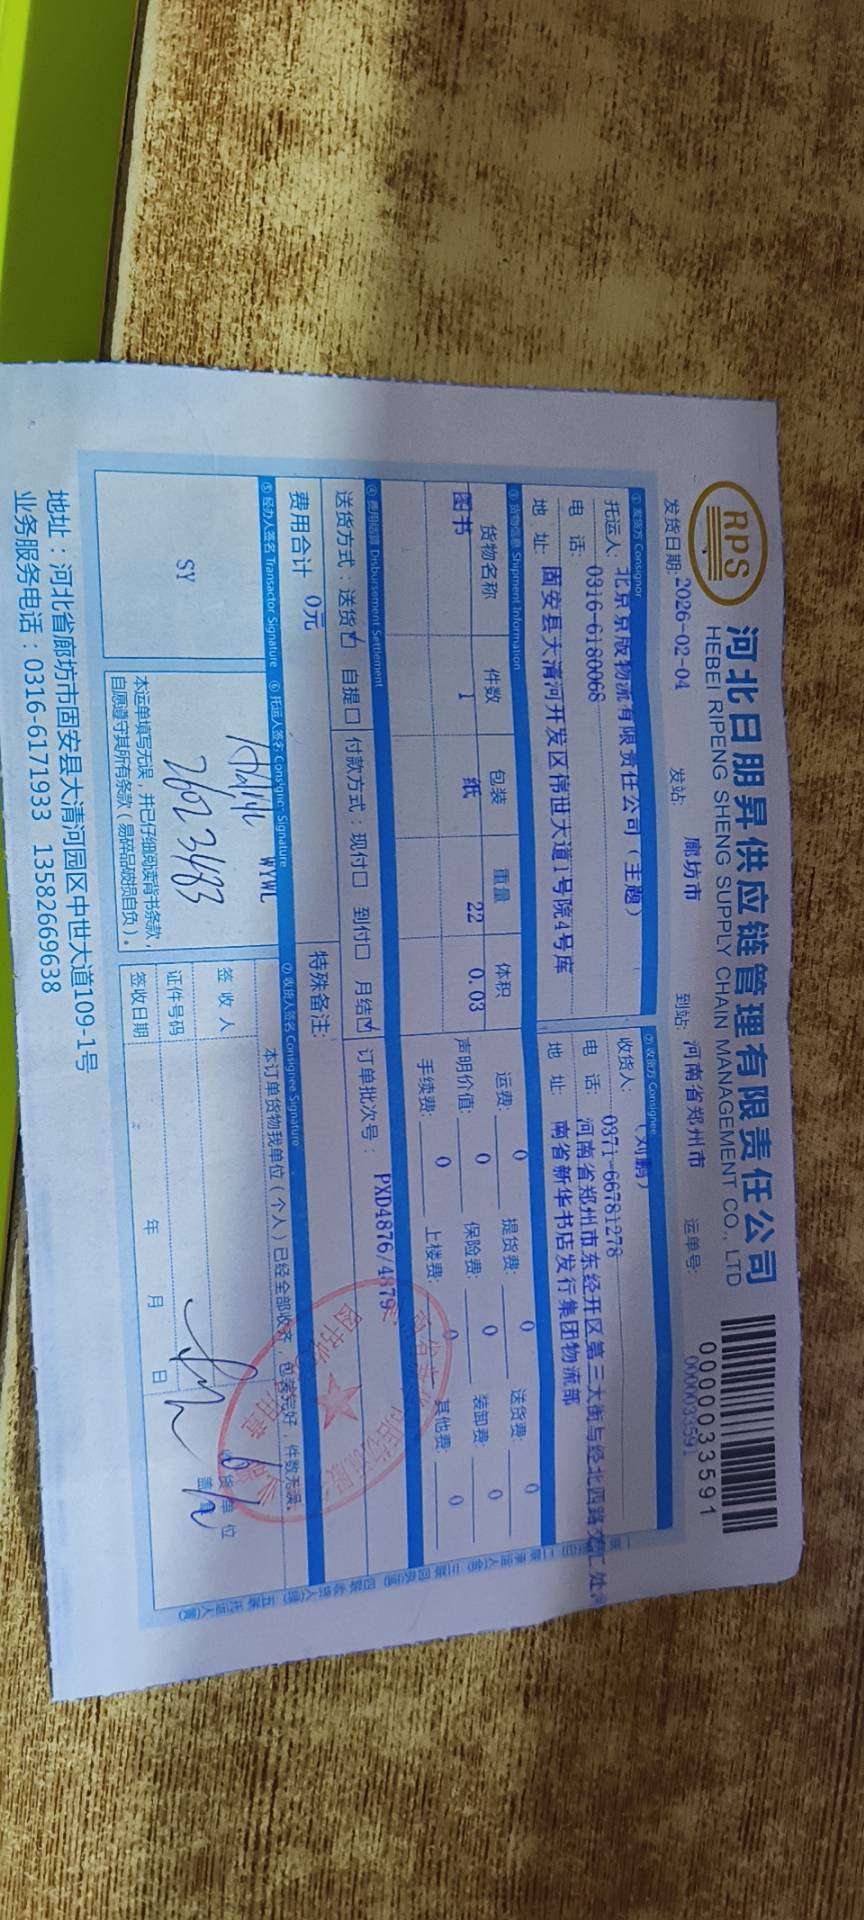 RPS
河北日朋昇供应链管理有限责任公司
HEBEI RIPENG SHENG SUPPLY CHAIN MANAGEMENT CO., LTD
0000033591
发货日期: 2026-02-04 发站: 廊坊市 到站: 河南省郑州市 运单号: 0000033591
① 发货方 Consignor
托运人: 北京京版物流有限责任公司（主题）
电 话: 0316-6180068
地 址: 固安县大清河开发区伟世大道1号院4号库
② 收货方 Consignee
收货人: （刘鹏）
电 话: 0371-66781278
地 址: 河南省郑州市东经开区第三大街与经北四路交汇处河
南省新华书店发行集团物流部
③ 货物信息 Shipment Information
货物名称 件数 包装 重量 体积
图书 1 纸 22 0.03
运费: 0 提货费: 0 送货费: 0
声明价值: 0 保险费: 0 装卸费: 0
手续费: 0 上楼费: 0 其他费: 0
④ 费用结算 Disbursement Settlement
送货方式：送货☑ 自提☐ 付款方式：现付☐ 到付☐ 月结☑ 订单批次号： PXD4876/4879
费用合计 0元
特殊备注:
⑤ 经办人签名 Transactor Signature
SY
⑥ 托运人签名: Consignor Signature
WYWL
2602 3483
本运单填写无误，并已仔细阅读背书条款，
自愿遵守其所有条款（易碎品破损自负）。
⑦ 收货人签名 Consignee Signature
本订单货物我单位（个人）已经全部收齐，包装完好，件数无误。
签 收 人
证件号码
签收日期 年 月 日
收货单位
盖章
地址：河北省廊坊市固安县大清河园区中世大道109-1号
业务服务电话：0316-6171933 13582669638